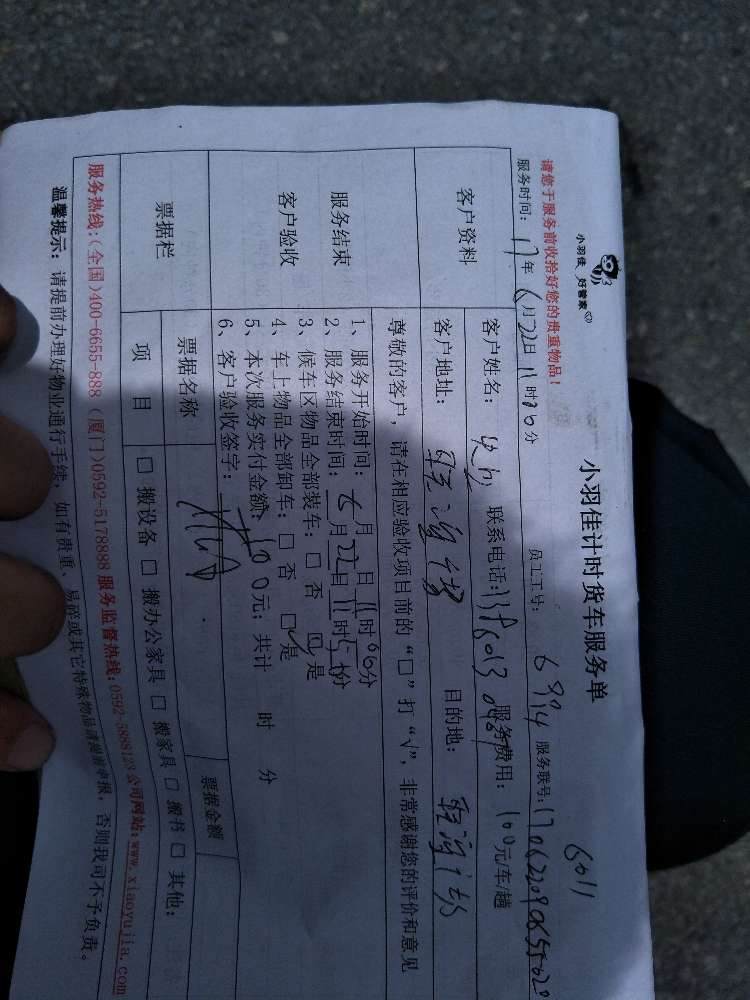 小羽佳 好管家
6011
小羽佳计时货车服务单
请您于服务前收拾好您的贵重物品！ 员工工号： 6994 服务联号：
服务时间： 17年 6月22日 11时06分
客户资料
客户姓名： 联系电话： 服务费用： 100元/车/趟
客户地址： 目的地：
尊敬的客户，请在相应验收项目前的“□”打“√”，非常感谢您的评价和意见
服务结束
客户验收
1、服务开始时间： 6月 日11时06分
2、服务结束时间： 6月22日11时 分
3、候车区物品全部装车：□ 否 ☑ 是
4、车上物品全部卸车：□ 否 ☑ 是
5、本次服务实付金额：100元；共计 时 分
6、客户验收签字：
票据栏
票据名称 票据金额
项 目 □ 搬设备 □ 搬办公家具 □ 搬家具 □ 搬书 □ 其他：
服务热线：(全国)400-6655-888 (厦门)0592-5178888 服务监督热线：0592-5888123 公司网站：www.xiaoyujia.com
温馨提示：请提前办理好物业通行手续，如有贵重、易碎或其它特殊物品请提前申报，否则我司不予负责。